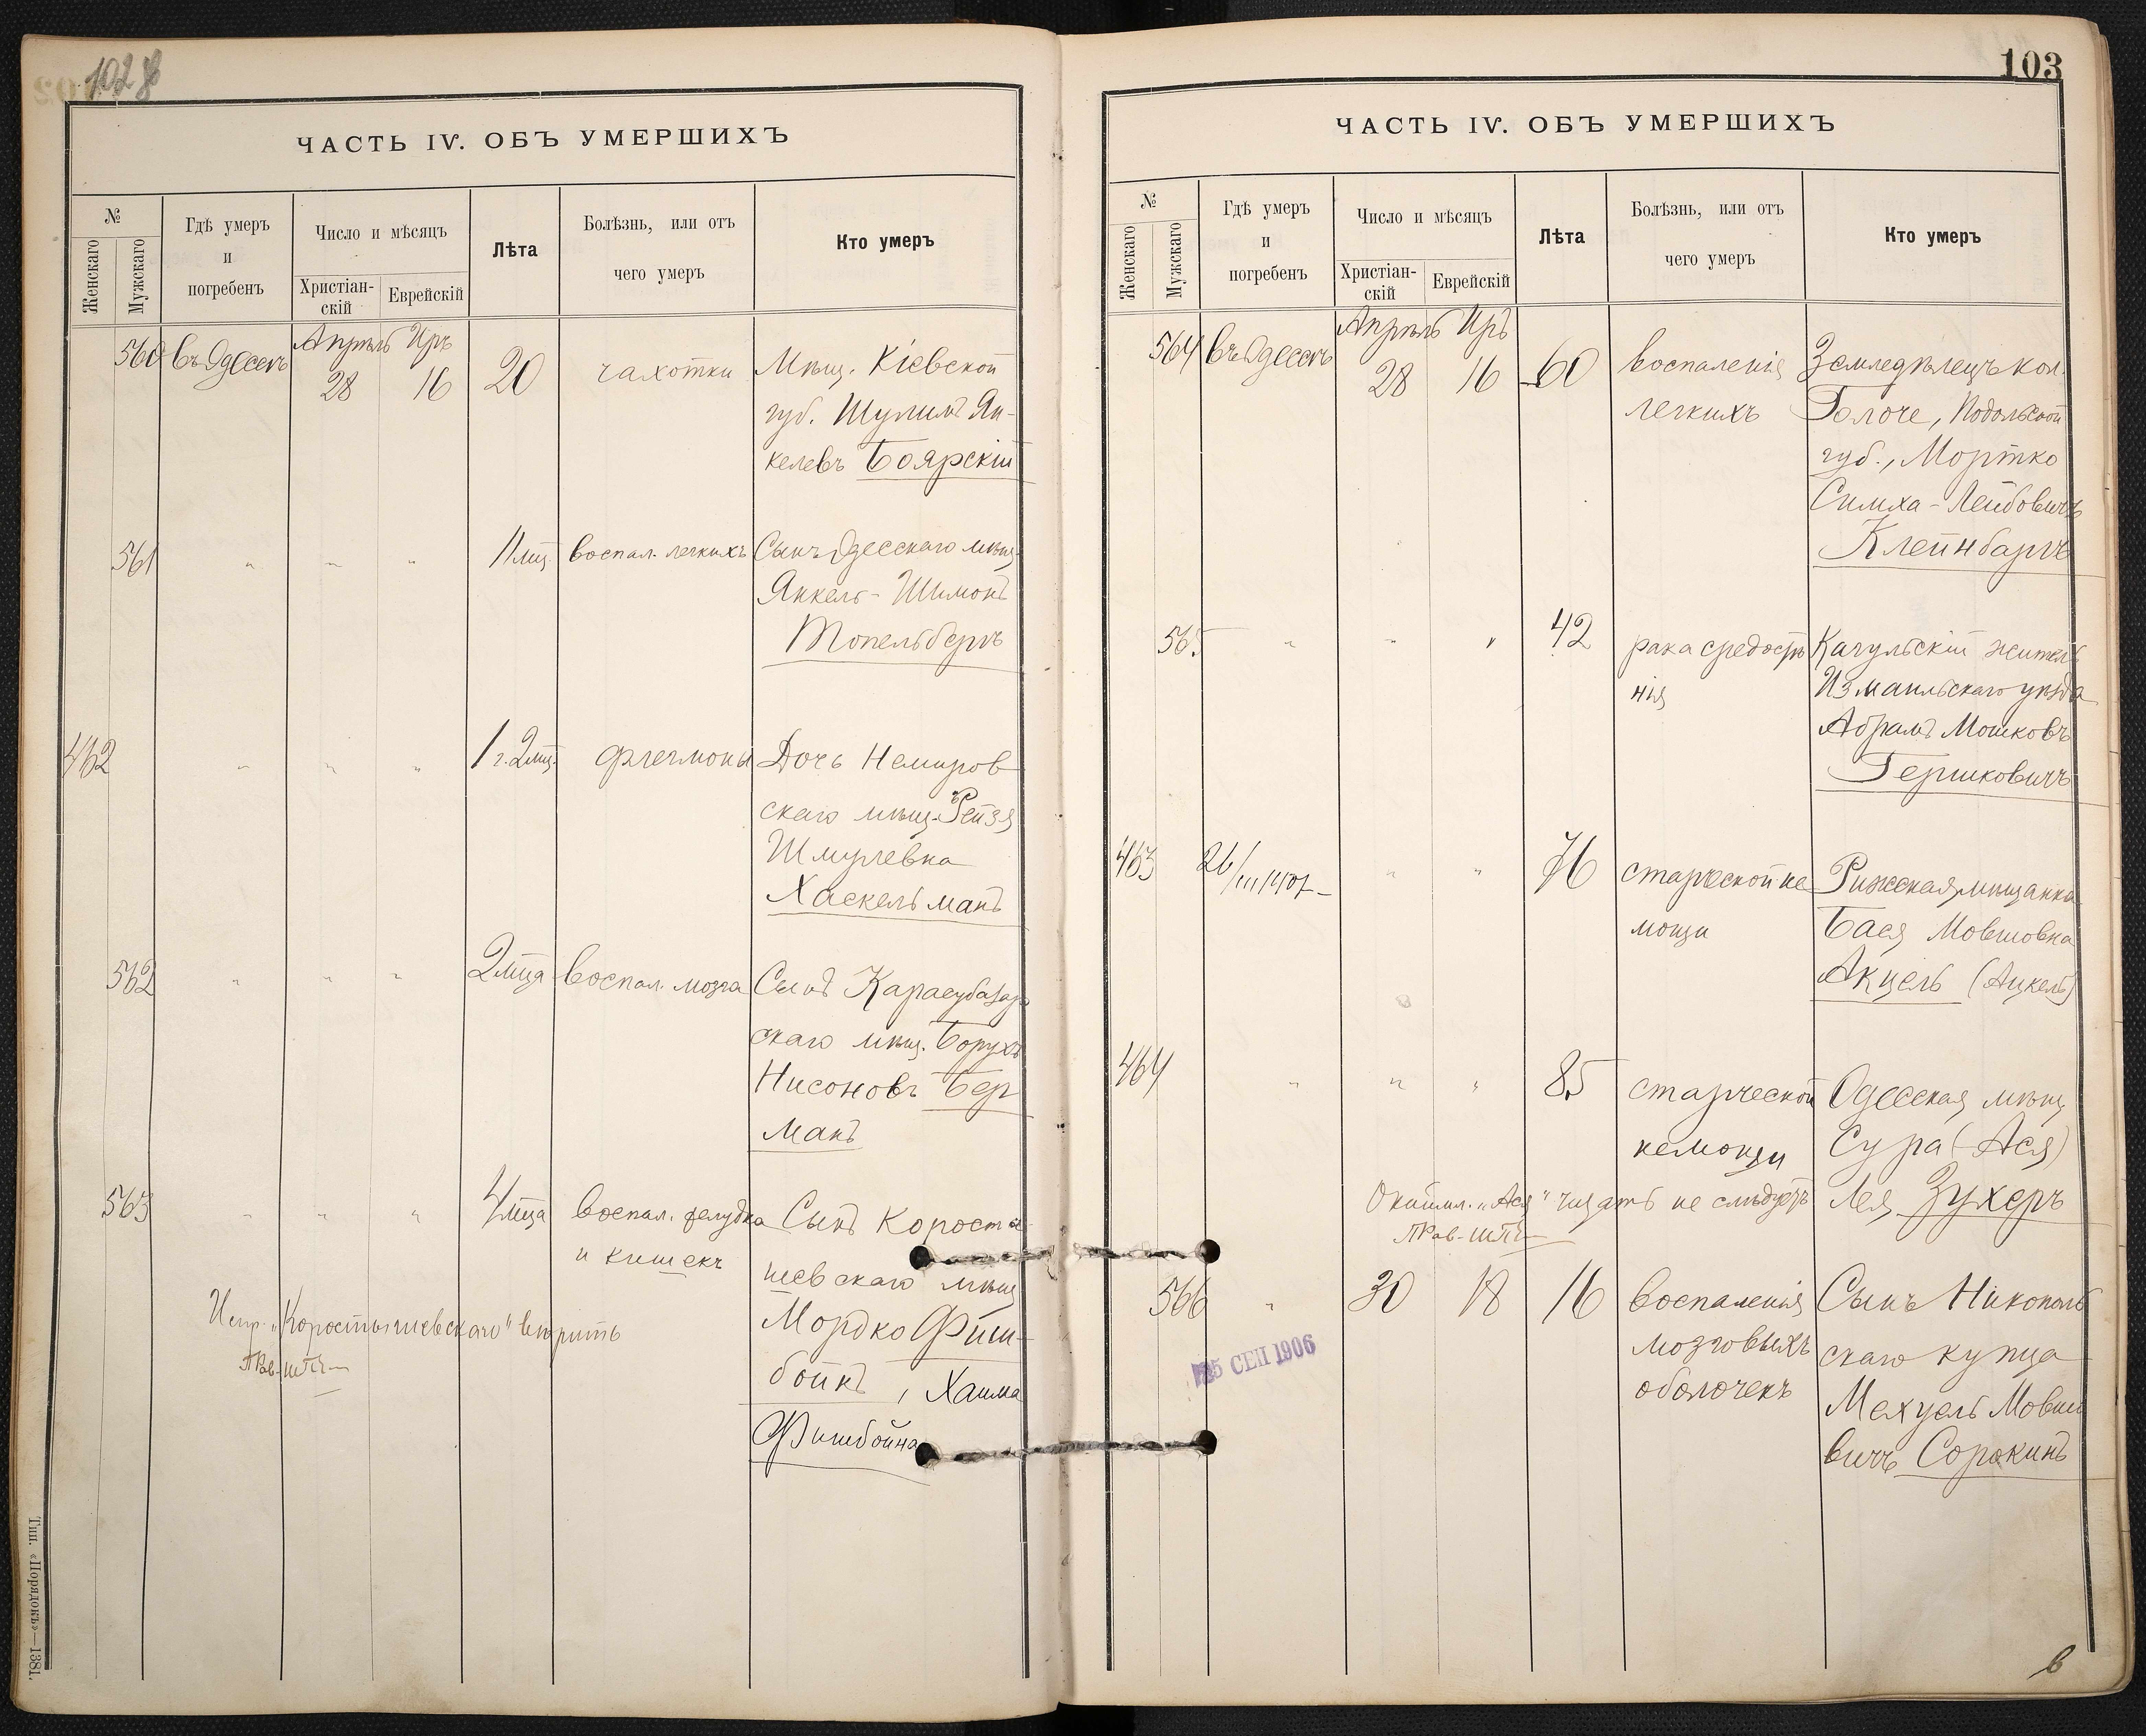 ЧАСТЬ IV. ОБЪ УМЕРШИХЪ
№
Женскаго
Мужскаго
Гдѣ умеръ
и
погребенъ
Число и мѣсяцъ
Христіан-
скій
Еврейскій
Лѣта
Болѣзнь, или отъ
чего умеръ
Кто умеръ
560 въ Одессѣ Апрѣль Иръ
28 16 20 чахотки Мѣщ. Кіевской
губ. Шулимъ Ян-
келевъ Боярскій
561 " " " 11 мц. воспал. легкихъ Сынъ Одесскаго мѣщ.
Янкель-Шимонъ
Топельбергъ
462 " " " 1 г. 2 мц. флегмоны Дочь Немиров
скаго мѣщ. Рейзя
Шмулевна
Хаскельманъ
562 " " " 2 мца воспал. мозга Сынъ Карасубазар
скаго мѣщ. Борухъ
Нисоновъ Бер
манъ
563 " " " 4 мца воспал. желудка Сынъ Коросты
и кишекъ
шевскаго мѣщ
Мордко Фиш-
бойнъ, Хаима
Фишбойна
Испр. „Коростышевскаго" вѣрить
Тип. «Порядокъ»—1381.
103
ЧАСТЬ IV. ОБЪ УМЕРШИХЪ
№
Женскаго
Мужскаго
Гдѣ умеръ
и
погребенъ
Число и мѣсяцъ
Христіан-
скій
Еврейскій
Лѣта
Болѣзнь, или отъ
чего умеръ
Кто умеръ
564 въ Одессѣ Апрѣль Иръ
28 16 60 воспаленія Земледѣлецъ кол.
легкихъ Голоче, Подольской
губ., Мортко
Симха-Лейбовичъ
Клейнбаргъ
565 " " " 42 рака средостѣ Кагульскій житель
нія Измаильскаго уѣзда
Абрамъ Мошковъ
Гершковичъ
463 " " 76 старческой не Рижская мѣщанка
мощи Бася Мовшовна
Акцель (Ацкель)
464 " " " 85 старческой Одесская мѣщ.
немощи Сура (Ася)
Лея Зухеръ
„Ася" читать не слѣдуетъ
566 " 30 18 16 воспаленія Сынъ Никополь
мозговыхъ скаго купца
оболочекъ Мехуель Мовшо
вичъ Сорокинъ
25 СЕП 1906